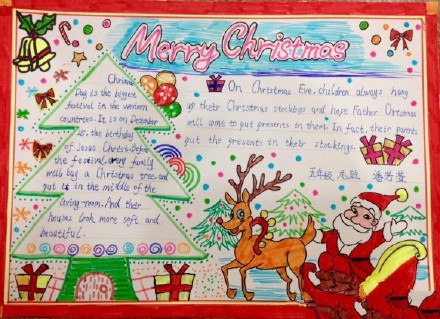 Merry Christmas
Christmas
Day is the biggest
festival in the western
countries. It is on December
25, the birthday
of Jesus Christ. Before
the festival, every family
will buy a Christmas tree and
put it in the middle of the
living-room. And their
houses look more soft and
beautiful.
On Christmas Eve, children always hang
up their Christmas stockings and hope Father Christmas
will come to put presents in them. In fact, their parents
put the presents in their stockings.
五年级